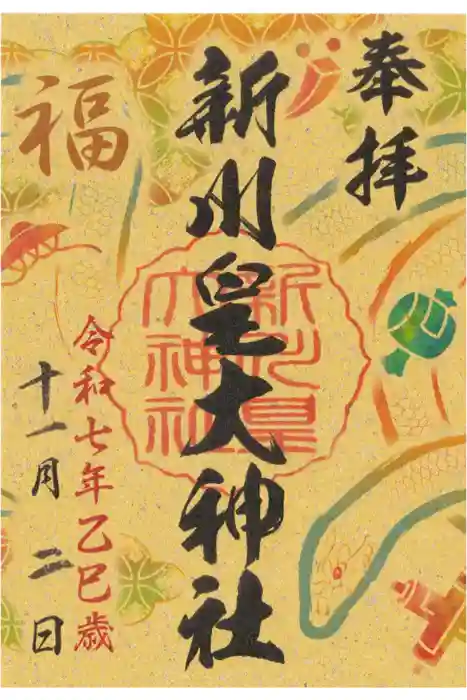 奉拝
新川皇大神社
新川皇大神社
福
令和七年乙巳歳
十一月二日